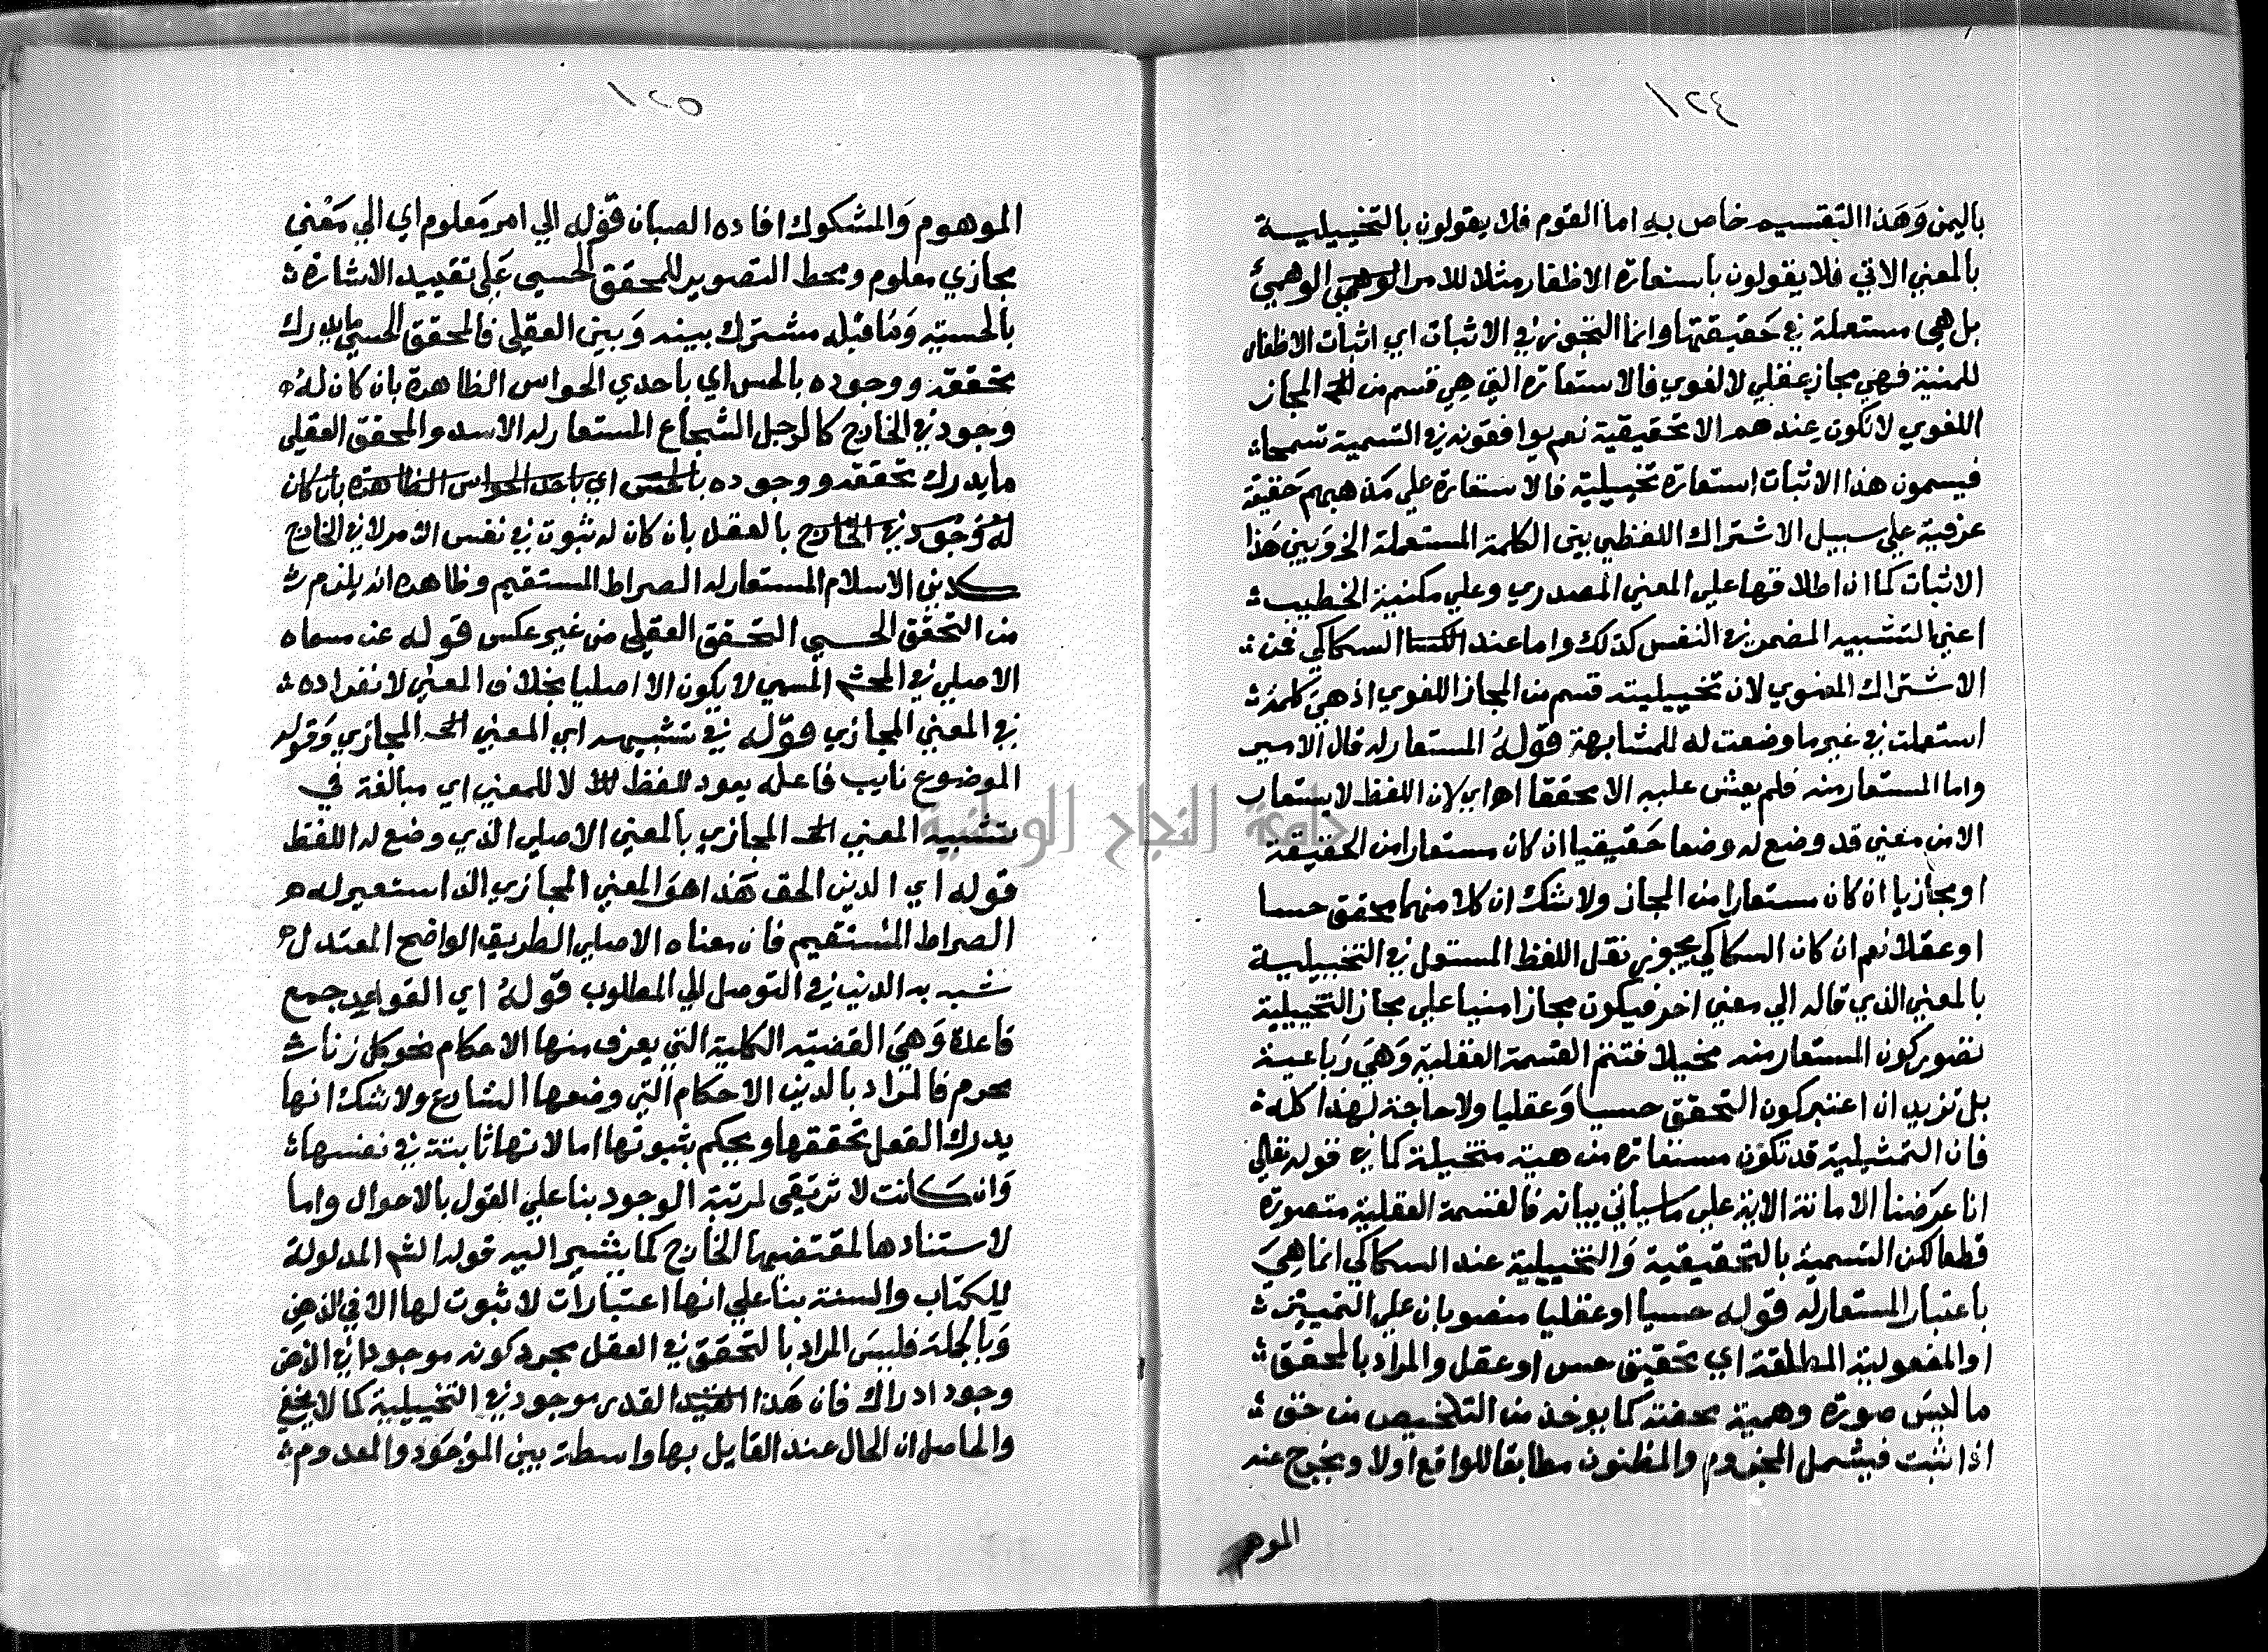 ١٢٤
باليمن وهذا التقسيم خاص به اما القوم فلا يقولون بالتخييلية
بالمعني الاتي فلا يقولون باستعارة الاظفار مثلا للامر الوهمي الوهمي
بل هي مستعملة في حقيقتها وانما التجوز في الاثبات اي اثبات الاظفار
للمنية فهي مجاز عقلي لا لغوي فالاستعارة التي هي قسم من المجاز
اللغوي لا تكون عندهم الا تحقيقية نعم يوافقونه في التسمية تسمحا
فيسمون هذا الاثبات استعارة تخييلية فالاستعارة علي مذهبهم حقيقة
عرفية علي سبيل الاشتراك اللفظي بين الكلمة المستعملة الخ وبين هذا
الاثبات كما ان اطلاقها علي المعني المصدري وعلي مكنية الخطيب
اعني التشبيه المضمر في النفس كذلك واما عند السكاكي فمن
الاشتراك المعنوي لان تخييليته قسم من المجاز اللغوي اذ هي كلمة
استعملت في غير ما وضعت له للمشابهة قوله المستعار له قال الامير
واما المستعار منه فلم يعش عليه الا محققا اه اي لان اللفظ لا يستعار
الا من معني قد وضع له وضعا حقيقيا ان كان مستعارا من الحقيقة
او مجازيا ان كان مستعارا من المجاز ولا شك ان كلا منهما محقق حسا
او عقلا نعم ان كان السكاكي يجوز نقل اللفظ المستعمل في التخييلية
بالمعني الذي قاله الي معني اخر فيكون مجازا مبنيا علي مجاز التخييلية
تصور كون المستعار منه مخيلا فتتم القسمة العقلية وهي رباعية
بل تزيد ان اعتبر كون التحقق حسيا وعقليا ولا حاجة لهذا كله
فان التمثيلية قد تكون مستعارة من هيئة متخيلة كما في قوله تعالي
انا عرضنا الامانة الاية علي ما سياتي بيانه فالقسمة العقلية متصورة
قطعا لكن التسمية بالتحقيقية والتخييلية عند السكاكي انما هي
باعتبار المستعار له قوله حسيا او عقليا منصوبان علي التمييز
او المفعولية المطلقة اي تحقيق حس او عقل والمراد بالمحقق
ما ليس صورة وهمية محضة كما يوخذ من التلخيص من حق
اذا ثبت فيشمل المجزوم والمظنون مطابقا للواقع اولا ويخرج عنه
الموهو
١٢٥
الموهوم والمشكوك افاده الصبان قوله الي امر معلوم اي الي معني
مجازي معلوم ومحط التصوير للمحقق الحسي علي تقييد الاشارة
بالحسية وما قبله مشترك بينه وبين العقلي فالمحقق الحسي ما يدرك
تحققه ووجوده بالحس اي باحدي الحواس الظاهرة بان كان له
وجود في الخارج كالرجل الشجاع المستعار له الاسد والمحقق العقلي
ما يدرك تحققه ووجوده بالحس اي باحد الحواس الظاهرة بان كان
له وجود في الخارج بالعقل بان كان له ثبوت في نفس الامر لا في الخارج
كدين الاسلام المستعار له الصراط المستقيم وظاهره انه يلزم
من التحقق الحسي التحقق العقلي من غير عكس قوله عن مسماه
الاصلي في المحشي المسمي لا يكون الا اصليا بخلاف المعني لانفراده
في المعني المجازي قوله في تشبيهه اي المعني المجازي وقوله
الموضوع نايب فاعله يعود للفظ لا للمعني اي مبالغة في
تشبيه المعني المجازي بالمعني الاصلي الذي وضع له اللفظ
قوله اي الدين الحق هذا هو المعني المجازي الذ استعير له
الصراط المستقيم فان معناه الاصلي الطريق الواضح المعتدل
شبه به الدين في التوصل الي المطلوب قوله اي القواعد جمع
قاعدة وهي القضية الكلية التي يعرف منها الاحكام نحو كل زنا
محرم فالمراد بالدين الاحكام التي وضعها الشارع ولا شك انها
يدرك العقل تحققها ويحكم بثبوتها اما لانها ثابتة في نفسها
وان كانت لا ترتقي لمرتبة الوجود بنا علي القول بالاحوال واما
لاستنادها لمقتضيها الخارج كما يشير اليه قوله الشم المدلولة
للكتاب والسنة بنا علي انها اعتبارات لا ثبوت لها الا في الذهن
وبالجملة فليس المراد بالتحقق في العقل مجرد كونه موجودا في الذهن
وجود ادراك فان هذا القدر موجود في التخييلية كما لا يخفي
والحاصل ان الحال عند القايل بها واسطة بين الموجود والمعدوم
جامعة النجاح الوطنية